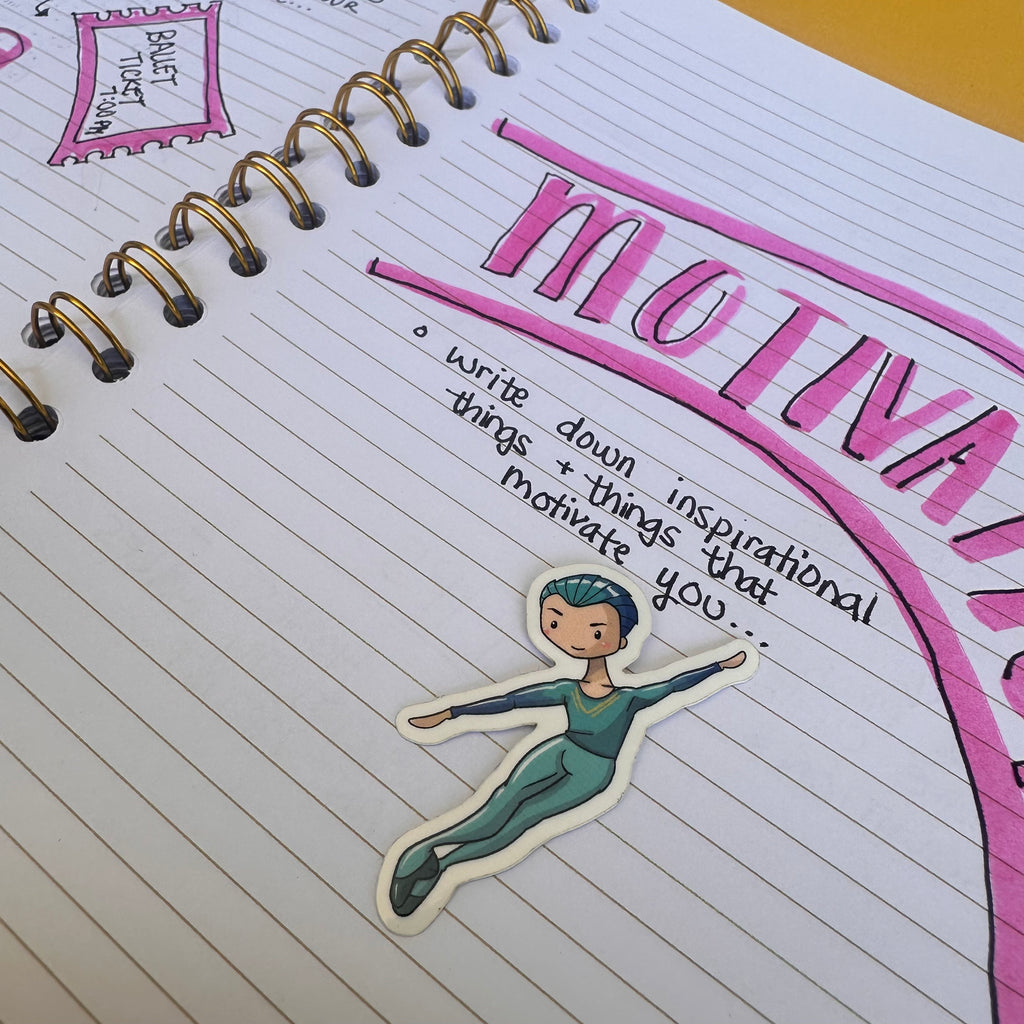 BALLET
TICKET
7:00 PM
MOTIVA
• write down inspirational
things + things that
motivate you...